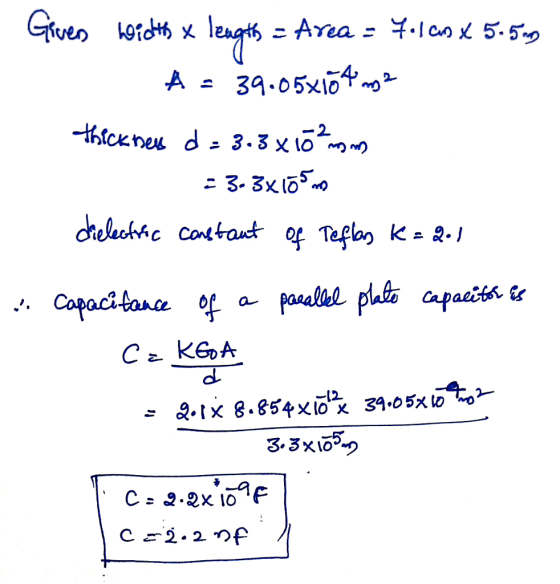 Given width x length = Area = 7.1cm x 5.5m
A = 39.05x10⁻⁴ m²
thickness d = 3.3 x 10⁻² mm
= 3.3x10⁻⁵ m
dielectric constant of Teflon K = 2.1
∴ Capacitance of a parallel plate capacitor is
C = Kε₀A
d
= 2.1 x 8.854x10⁻¹² x 39.05x10⁻⁴ m²
3.3x10⁻⁵ m
C = 2.2x10⁻⁹F
C = 2.2 nf